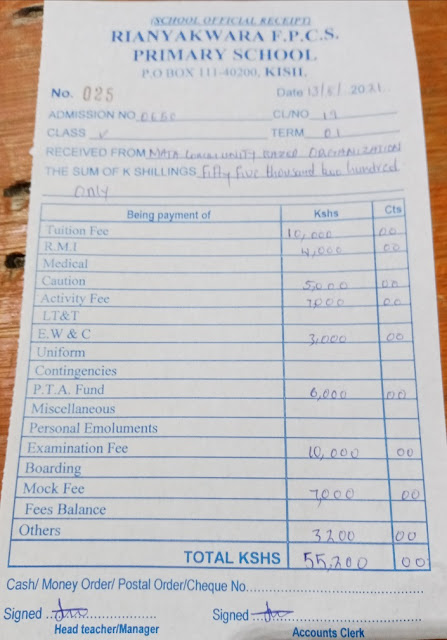 (SCHOOL OFFICIAL RECEIPT)
RIANYAKWARA F.P.C.S.
PRIMARY SCHOOL
P.O BOX 111-40200, KISII.
No. 025 Date 13/5/2021
ADMISSION NO. CL/NO 19
CLASS V TERM 01
RECEIVED FROM MATA COMMUNITY BASED ORGANIZATION
THE SUM OF K SHILLINGS Fifty five thousand two hundred
only
Being payment of Kshs Cts
Tuition Fee 10,000 00
R.M.I 4,000 00
Medical
Caution 5,000 00
Activity Fee 7000 00
LT&T
E.W & C 3,000 00
Uniform
Contingencies
P.T.A. Fund 6,000 00
Miscellaneous
Personal Emoluments
Examination Fee 10,000 00
Boarding
Mock Fee 7,000 00
Fees Balance
Others 3200 00
TOTAL KSHS 55,200 00
Cash/ Money Order/ Postal Order/Cheque No.
Signed Signed
Head teacher/Manager Accounts Clerk